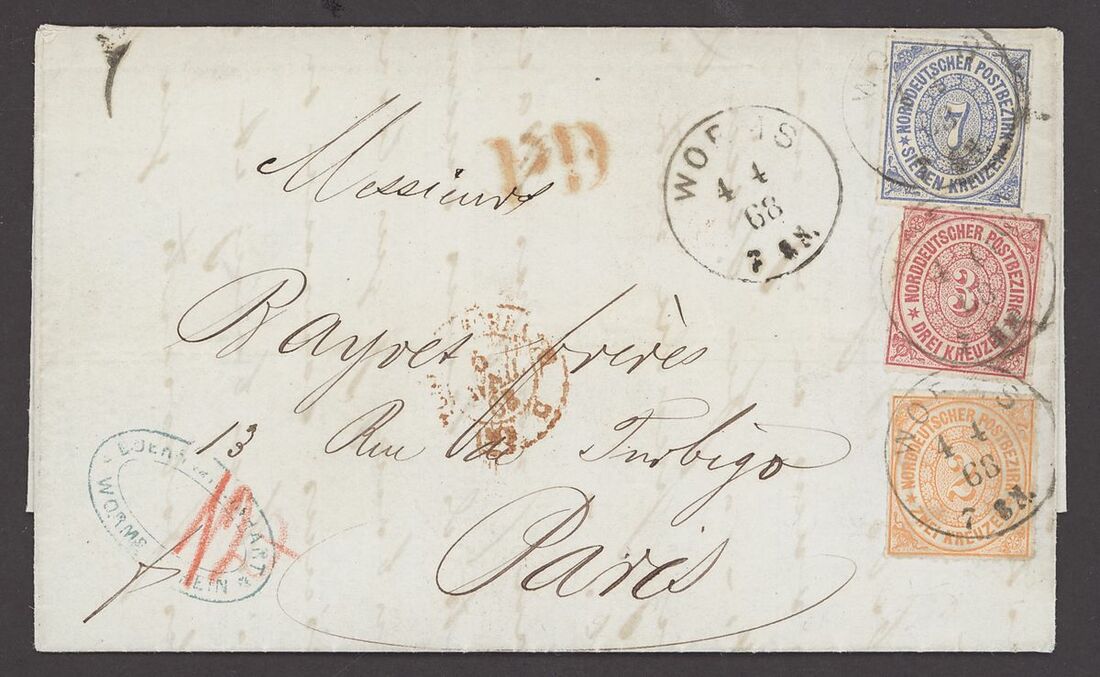 NORDDEUTSCHER POSTBEZIRK
7
SIEBEN KREUZER
P.D.
WORMS
4 4
68
7
Messieurs
NORDDEUTSCHER POSTBEZIRK
3
DREI KREUZER
Bayvet frères
13 Rue de Turbigo
Paris
NORDDEUTSCHER POSTBEZIRK
2
ZWEI KREUZER
WORMS
4 4
68
7 N.
WORMS